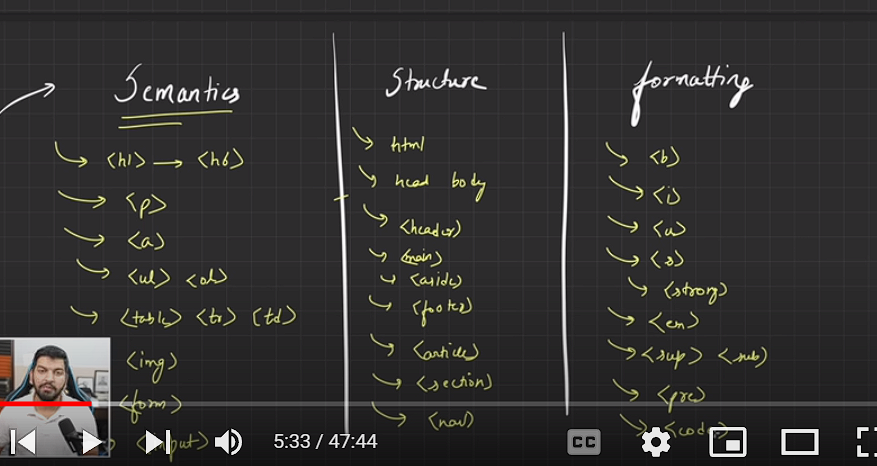 Semantics
<h1> → <h6>
<p>
<a>
<ul> <ol>
<table> <tr> <td>
<img>
<form>
<input>
Structure
html
head body
<header>
<main>
<aside>
<footer>
<article>
<section>
<nav>
formatting
<b>
<i>
<u>
<s>
<strong>
<em>
<sup> <sub>
<pre>
<code>
5:33 / 47:44
CC